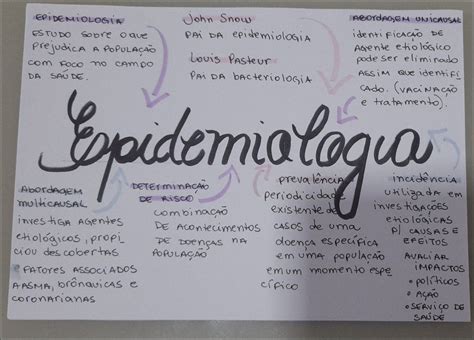 EPIDEMIOLOGIA
ESTUDO SOBRE O QUE
PREJUDICA A POPULAÇÃO
COM FOCO NO CAMPO
DA SAÚDE.
John Snow
PAI DA EPIDEMIOLOGIA
Louis Pasteur
PAI DA BACTERIOLOGIA
ABORDAGEM UNICAUSAL
IDENTIFICAÇÃO DE
AGENTE ETIOLÓGICO
PODE SER ELIMINADO
ASSIM QUE IDENTIFI
CADO. (VACINAÇÃO
E TRATAMENTO).
Epidemiologia
ABORDAGEM
MULTICAUSAL
INVESTIGA AGENTES
ETIOLÓGICOS, PROPI
CIOU DESCOBERTAS
E FATORES ASSOCIADOS
A ASMA, BRÔNQUICAS E
CORONARIANAS
DETERMINAÇÃO
DE RISCO
COMBINAÇÃO
DE ACONTECIMENTOS
DE DOENÇAS NA
POPULAÇÃO
PREVALÊNCIA
PERIODICIDADE
EXISTENTE DE
CASOS DE UMA
DOENÇA ESPECÍFICA
EM UMA POPULAÇÃO
EM UM MOMENTO ESPE
CÍFICO
INCIDÊNCIA
UTILIZADA EM
INVESTIGAÇÕES
ETIOLÓGICAS
P/ CAUSAS E
EFEITOS
AVALIAR
IMPACTOS
• POLÍTICOS
• AÇÃO
• SERVIÇO DE
SAÚDE